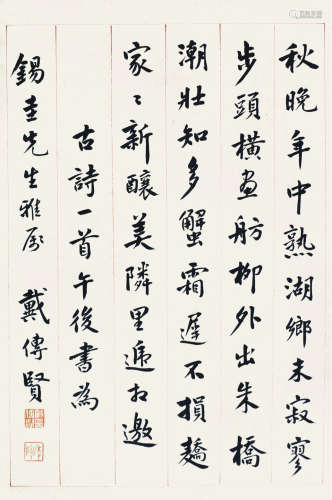 秋晚年中熟湖鄉未寂寥
步頭橫畫舫柳外出朱橋
潮壯知多蟹霜遲不損蕎
家〻新釀美隣里遞相邀
古詩一首午後書為
錫圭先生雅屬 戴傳賢